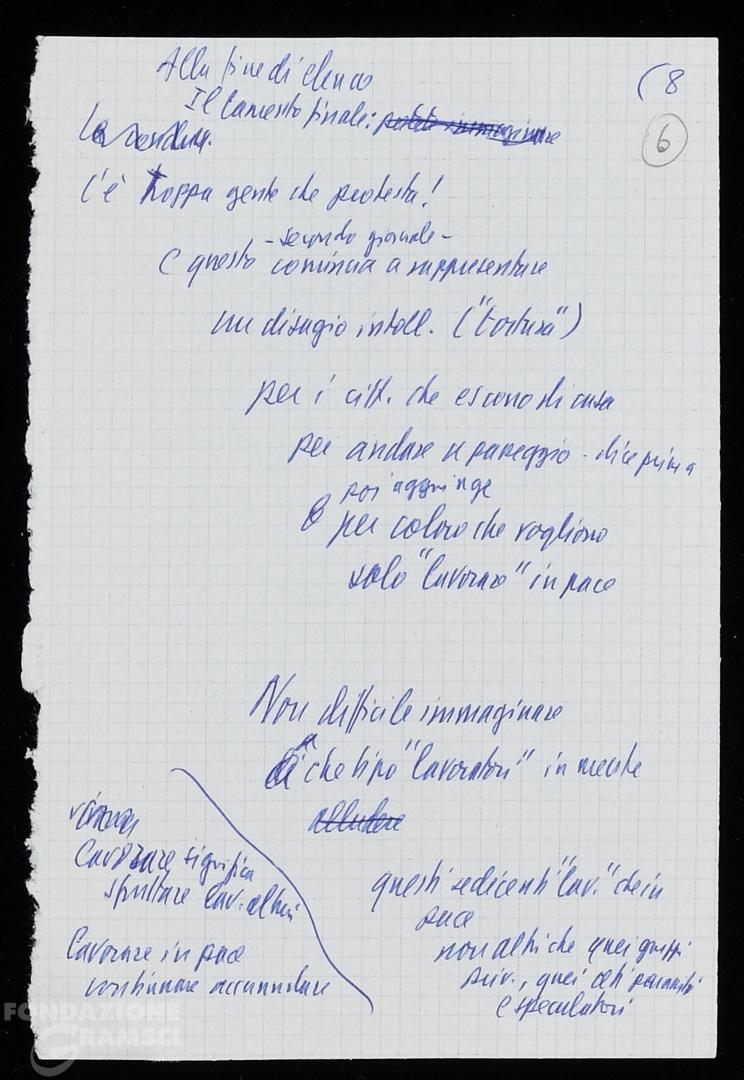 Alla fine di elenco
(8
Il lamento finale:
6
C'è troppa gente che protesta!
- secondo giornale -
E questo comincia a rappresentare
un disagio intoll. ("tortura")
per i citt. che escono di casa
per andare a passeggio - dice prima
poi aggiunge
e per coloro che vogliono
solo "lavorare" in pace
Non difficile immaginare
a che tipo "lavoratori" in mente
alludere
Lavorare significa
sfruttare lav. altrui
questi sedicenti "lav." che in
pace
Lavorare in pace
non altri che quei gruppi
continuare accumulare
priv., quei ceti parassiti
e speculatori
FONDAZIONE
GRAMSCI